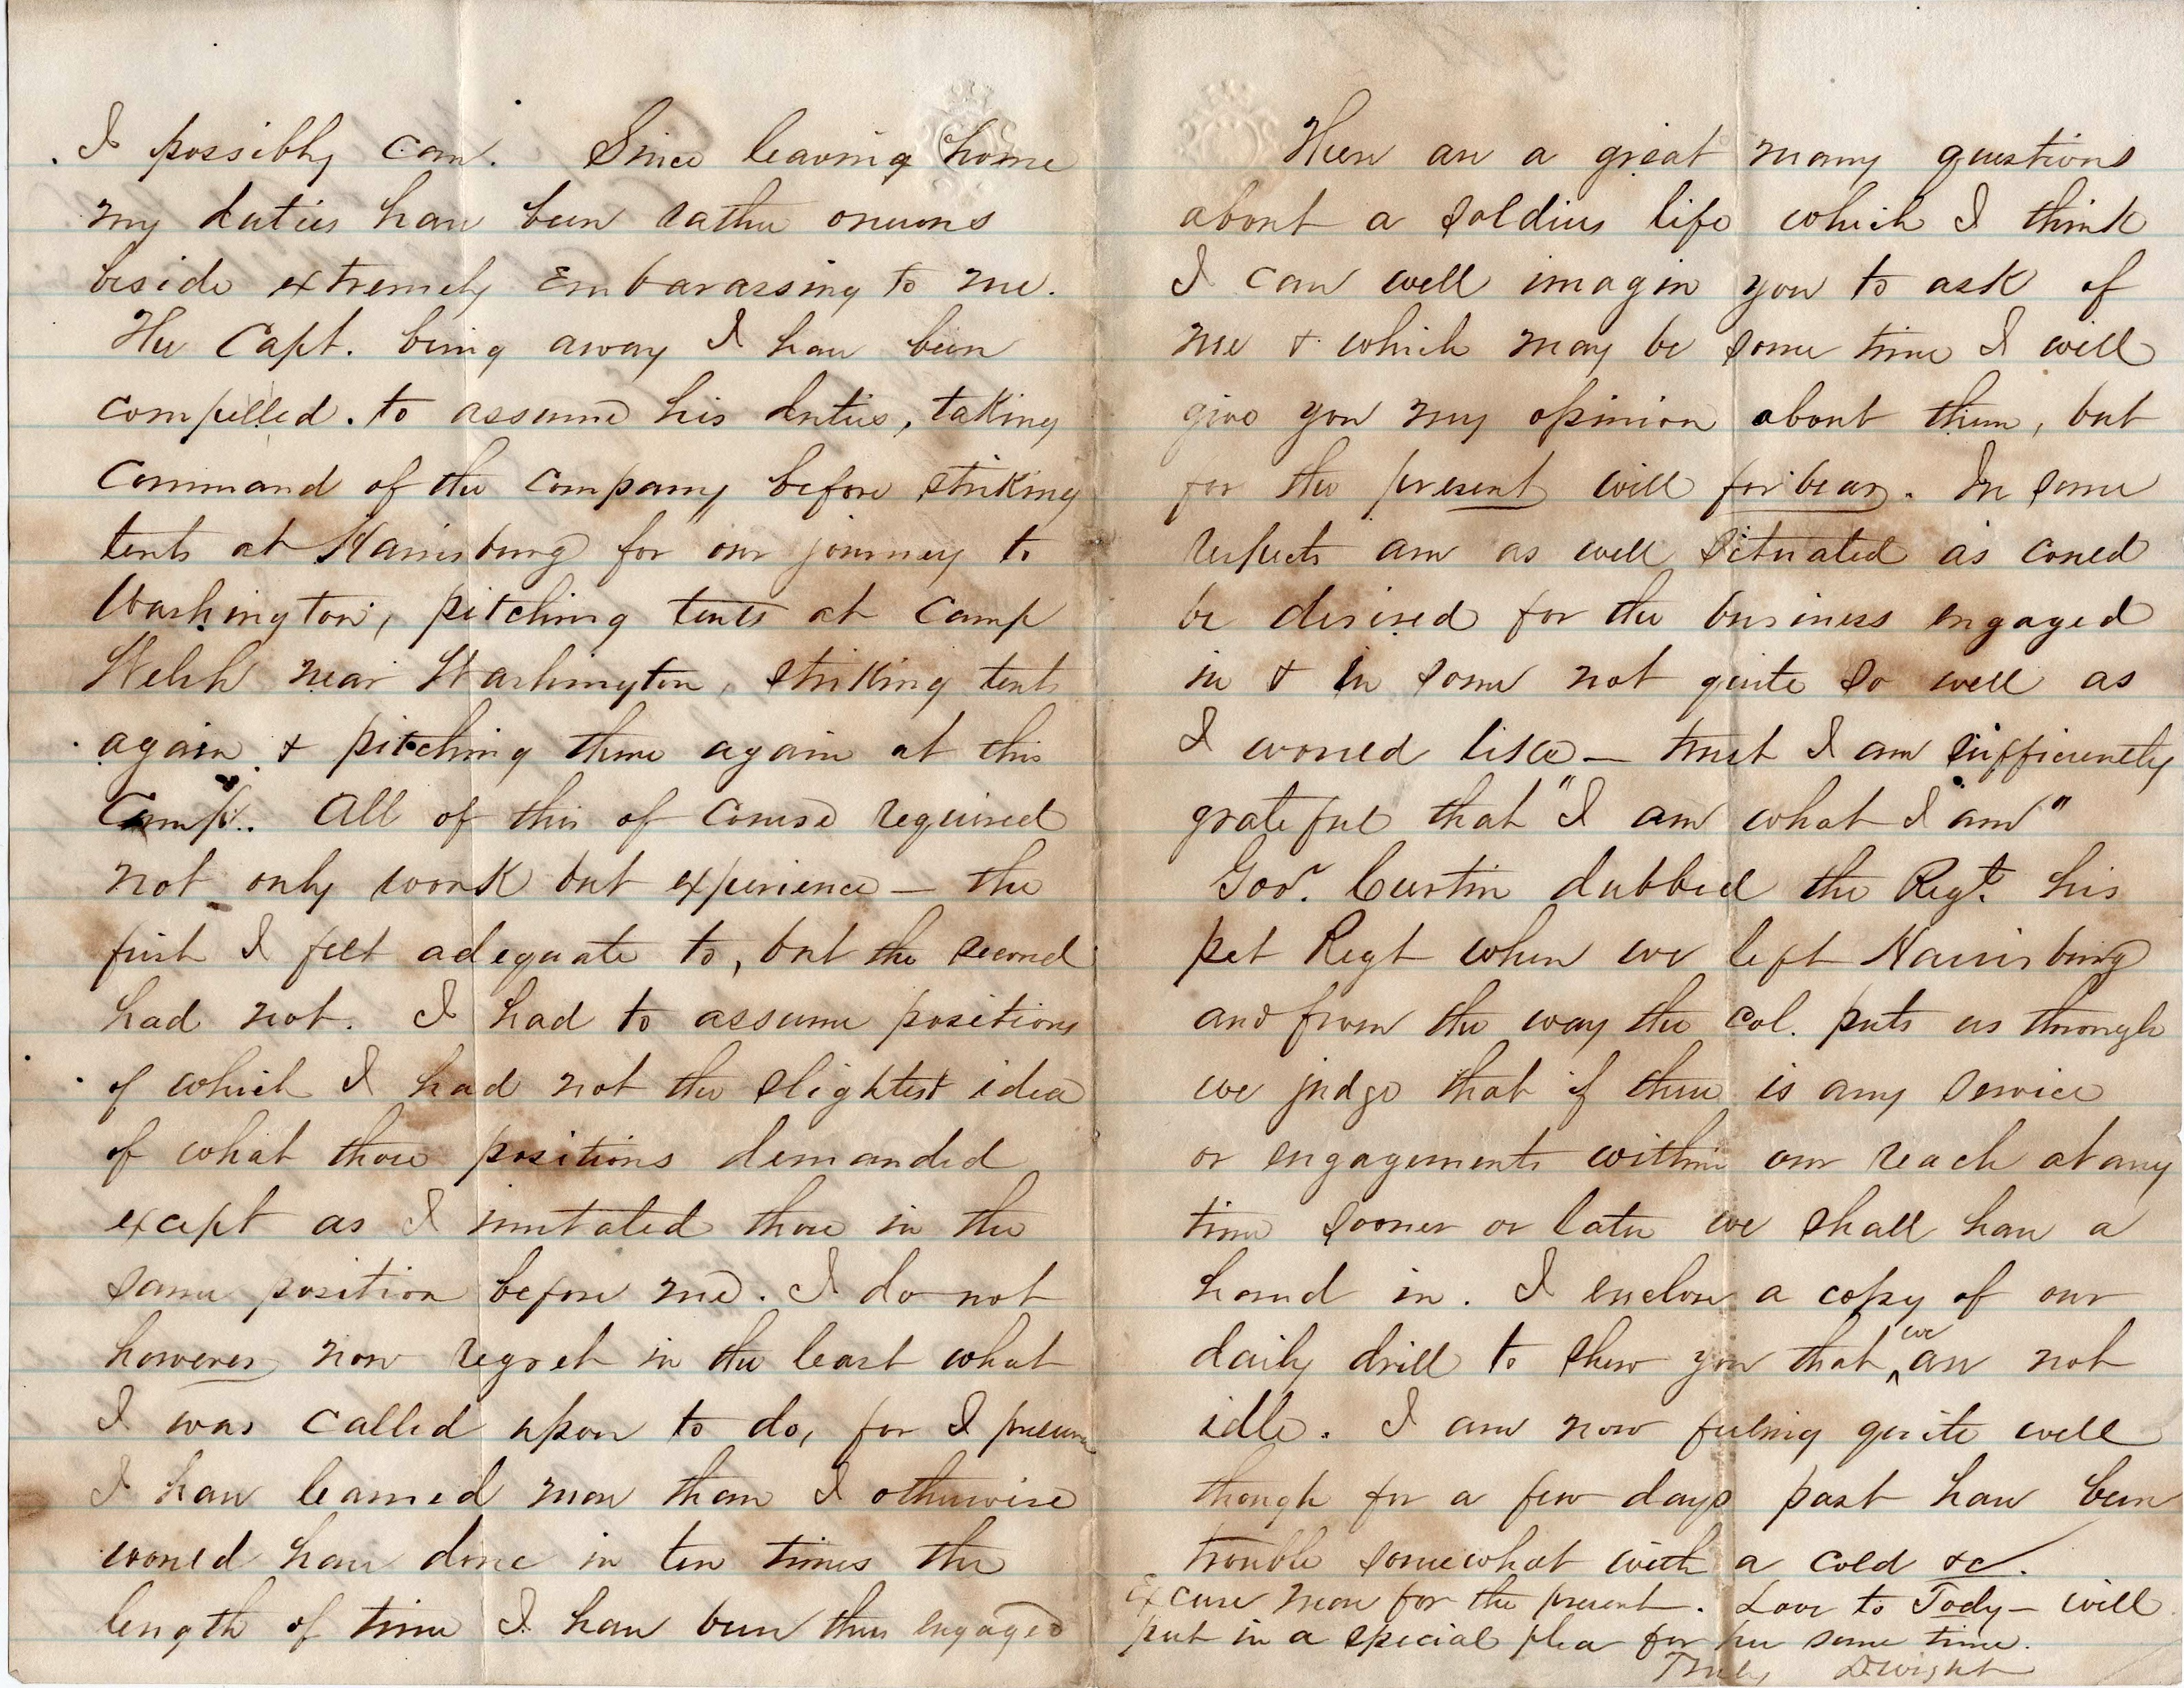 I possibly can. Since leaving home
my duties have been rather onerous
beside extremely embarassing to me.
The Capt. being away I have been
compelled to assume his duties, taking
command of the company before striking
tents at Harrisburg for our journey to
Washington, pitching tents at Camp
Welsh near Washington, striking tents
again & pitching them again at this
Camp. All of this of course required
not only work but experience — the
first I felt adequate to, but the second
had not. I had to assume positions
of which I had not the slightest idea
of what those positions demanded
except as I imitated those in the
same position before me. I do not
however now regret in the least what
I was called upon to do, for I presume
I have learned more than I otherwise
would have done in ten times the
length of time I have been thus engaged
There are a great many questions
about a soldiers life which I think
I can well imagin you to ask of
me & which may be some time I will
give you my opinion about them, but
for the present will forbear. In some
respects am as well situated as could
be desired for the business engaged
in & in some not quite so well as
I would like — trust I am sufficiently
grateful that "I am what I am"
Gov. Curtin dubbed the Regt. his
pet Regt when we left Harrisburg
and from the way the Col. puts us through
we judge that if there is any service
or engagements within our reach at any
time sooner or later we shall have a
hand in. I enclose a copy of our
daily drill to show you that we are not
idle. I am now feeling quite well
though for a few days past have been
trouble somewhat with a cold &c.
Excuse more for the present. Love to Tody — will
put in a special plea for her some time.
Truly Dwight